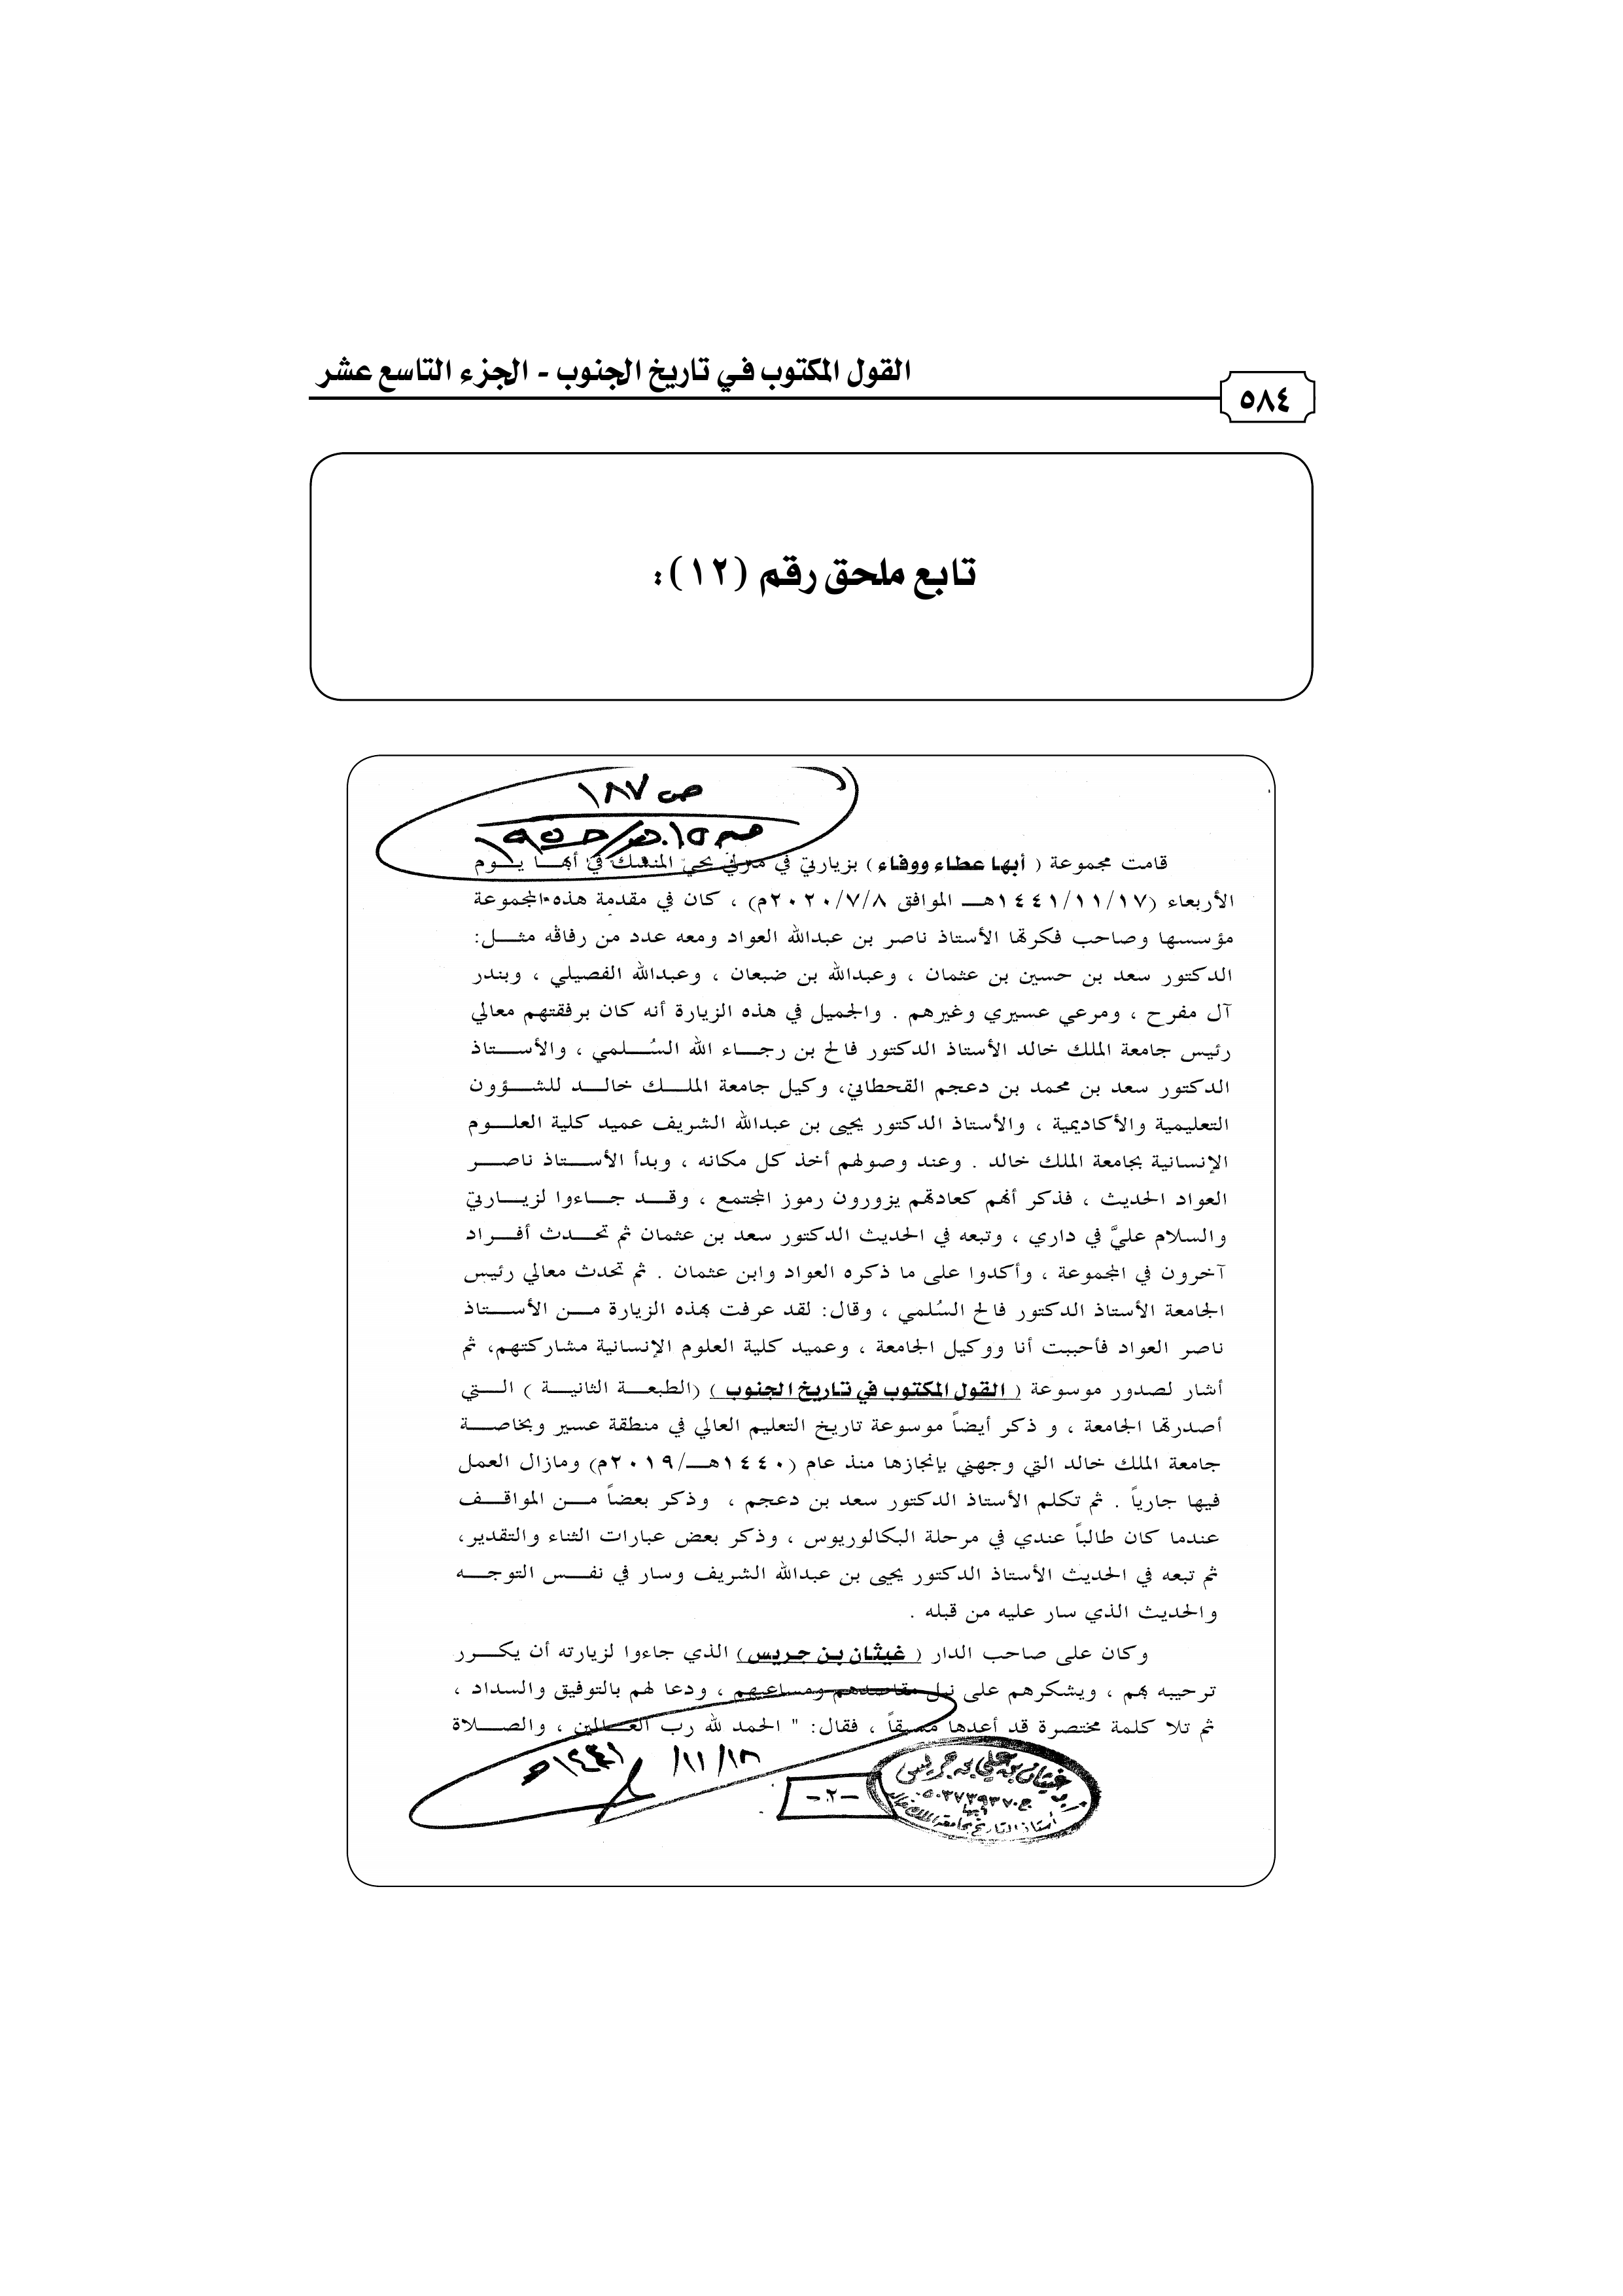 القول المكتوب في تاريخ الجنوب - الجزء التاسع عشر
٥٨٤
تابع ملحق رقم (١٢):
ص ١٨٧
قامت مجموعة ( أبها عطاء ووفاء ) بزيارتي في منزلي بحي المنسك في أبهـــا يـــوم
الأربعاء (١٤٤١/١١/١٧هـــ الموافق ٢٠٢٠/٧/٨م) ، كان في مقدمة هذه المجموعة
مؤسسها وصاحب فكرتها الأستاذ ناصر بن عبدالله العواد ومعه عدد من رفاقه مثـــل:
الدكتور سعد بن حسين بن عثمان ، وعبدالله بن ضبعان ، وعبدالله الفصيلي ، وبندر
آل مفرح ، ومرعي عسيري وغيرهم . والجميل في هذه الزيارة أنه كان برفقتهم معالي
رئيس جامعة الملك خالد الأستاذ الدكتور فالح بن رجـــاء الله السُـــلمي ، والأســـتاذ
الدكتور سعد بن محمد بن دعجم القحطاني، وكيل جامعة الملـــك خالـــد للشـــؤون
التعليمية والأكاديمية ، والأستاذ الدكتور يحيى بن عبدالله الشريف عميد كلية العلـــوم
الإنسانية بجامعة الملك خالد . وعند وصولهم أخذ كل مكانه ، وبدأ الأســـتاذ ناصـــر
العواد الحديث ، فذكر أنهم كعادتهم يزورون رموز المجتمع ، وقـــد جـــاءوا لزيـــارتي
والسلام عليَّ في داري ، وتبعه في الحديث الدكتور سعد بن عثمان ثم تحـــدث أفـــراد
آخرون في المجموعة ، وأكدوا على ما ذكره العواد وابن عثمان . ثم تحدث معالي رئيس
الجامعة الأستاذ الدكتور فالح السُلمي ، وقال: لقد عرفت بهذه الزيارة مـــن الأســـتاذ
ناصر العواد فأحببت أنا ووكيل الجامعة ، وعميد كلية العلوم الإنسانية مشاركتهم، ثم
أشار لصدور موسوعة ( القول المكتوب في تاريخ الجنوب ) (الطبعـــة الثانيـــة ) الـــتي
أصدرتها الجامعة ، و ذكر أيضاً موسوعة تاريخ التعليم العالي في منطقة عسير وبخاصـــة
جامعة الملك خالد التي وجهني بإنجازها منذ عام (١٤٤٠هـــ/٢٠١٩م) ومازال العمل
فيها جارياً . ثم تكلم الأستاذ الدكتور سعد بن دعجم ، وذكر بعضاً مـــن المواقـــف
عندما كان طالباً عندي في مرحلة البكالوريوس ، وذكر بعض عبارات الثناء والتقدير،
ثم تبعه في الحديث الأستاذ الدكتور يحيى بن عبدالله الشريف وسار في نفـــس التوجـــه
والحديث الذي سار عليه من قبله .
وكان على صاحب الدار ( غيثان بن جريس ) الذي جاءوا لزيارته أن يكـــرر
ترحيبه بهم ، ويشكرهم على نبل مقاصدهم ومساعيهم ، ودعا لهم بالتوفيق والسداد ،
ثم تلا كلمة مختصرة قد أعدها مسبقاً ، فقال: " الحمد لله رب العـــالمين ، والصـــلاة
١٤٤١/١١/١٨هـ
-٢-
غيثان بن علي بن جريس
أستاذ التاريخ بجامعة الملك خالد